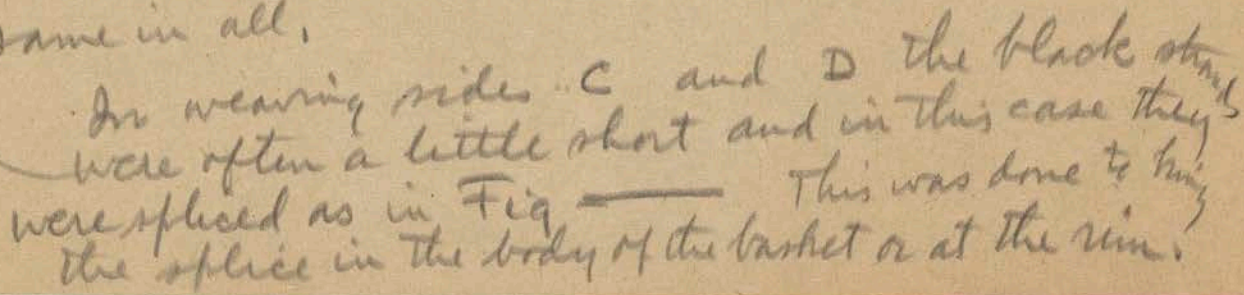 same in all.
In weaving sides C and D the black strands
were often a little short and in this case they
were spliced as in Fig —— This was done to bring
the splice in the body of the basket or at the rim.